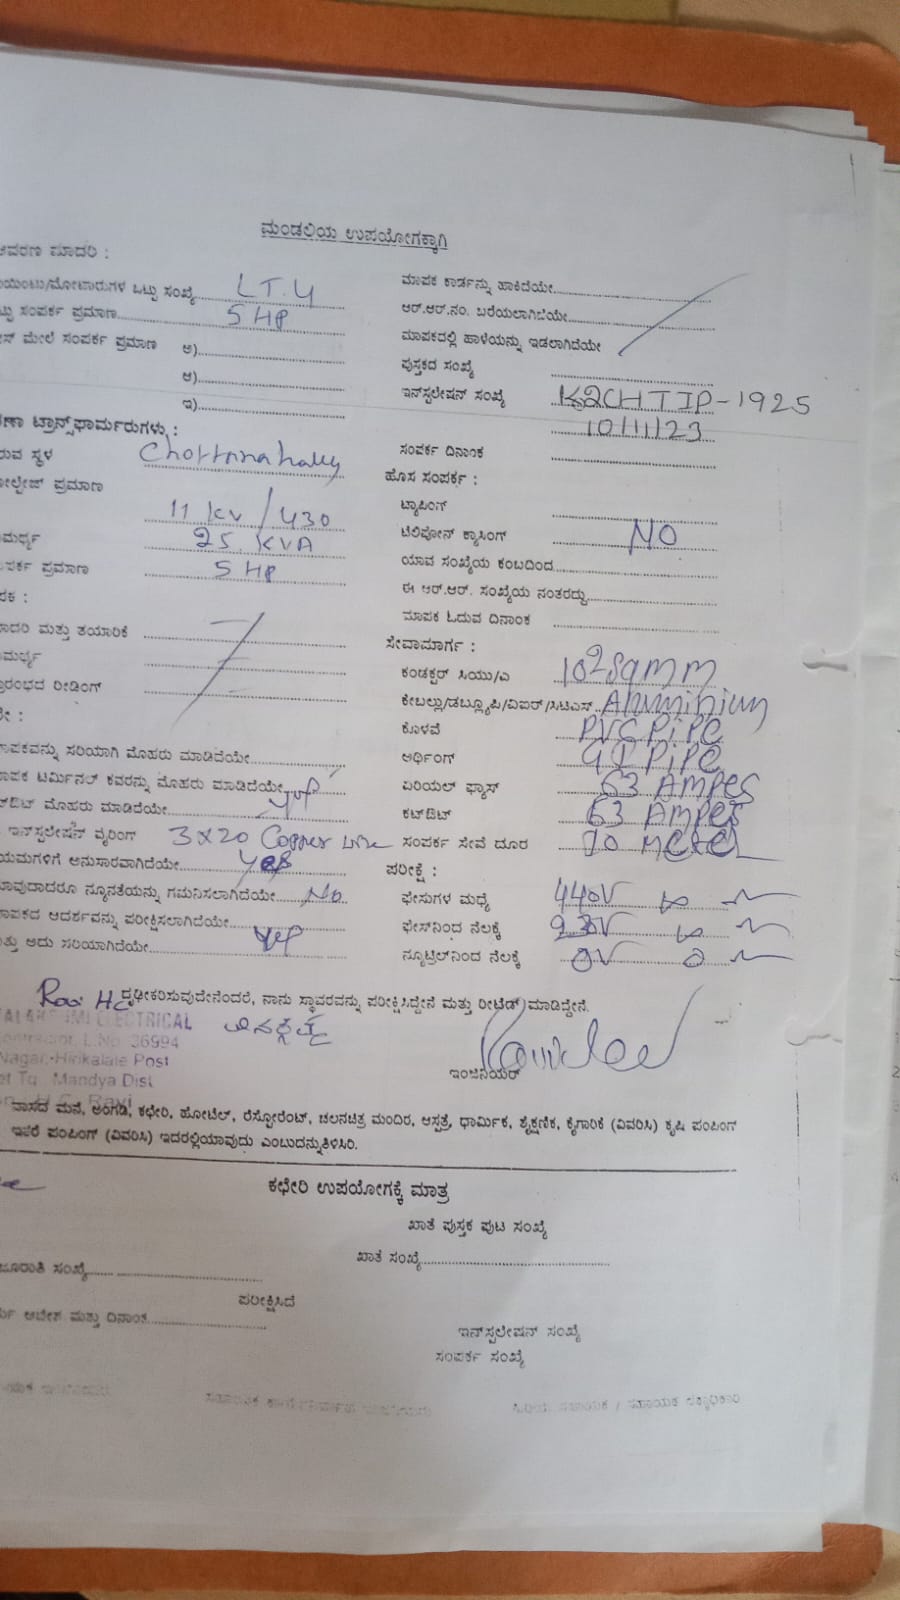 ಮಂಡಲಿಯ ಉಪಯೋಗಕ್ಕಾಗಿ
ಆವರಣ ಮಾದರಿ :
ಯಿಂಟು/ಮೋಟಾರುಗಳ ಒಟ್ಟು ಸಂಖ್ಯೆ LT.4
ಟ್ಟು ಸಂಪರ್ಕ ಪ್ರಮಾಣ 5 HP
ಸ್ ಮೇಲೆ ಸಂಪರ್ಕ ಪ್ರಮಾಣ ಅ)
ಆ)
ಇ)
ಣಾ ಟ್ರಾನ್ಸ್‌ಫಾರ್ಮರುಗಳು :
ರುವ ಸ್ಥಳ
ೋಲ್ಟೇಜ್ ಪ್ರಮಾಣ
11 KV / 430
ಮರ್ಥ್ಯ 25 KVA
ಪರ್ಕ ಪ್ರಮಾಣ 5 HP
ಪಕ :
ಾದರಿ ಮತ್ತು ತಯಾರಿಕೆ
ಮರ್ಥ್ಯ
ರಾರಂಭದ ರೀಡಿಂಗ್
ೇ :
ಾಪಕವನ್ನು ಸರಿಯಾಗಿ ಮೊಹರು ಮಾಡಿದೆಯೇ
ಾಪಕ ಟರ್ಮಿನಲ್ ಕವರನ್ನು ಮೊಹರು ಮಾಡಿದೆಯೇ
ಟ್‌ಔಟ್ ಮೊಹರು ಮಾಡಿದೆಯೇ yes
ಇನ್‌ಸ್ಟಲೇಷನ್ ವೈರಿಂಗ್ 3 X 20 Copper
ಯಮಗಳಿಗೆ ಅನುಸಾರವಾಗಿದೆಯೇ yes
ಾವುದಾದರೂ ನ್ಯೂನತೆಯನ್ನು ಗಮನಿಸಲಾಗಿದೆಯೇ No
ಾಪಕದ ಆದರ್ಶವನ್ನು ಪರೀಕ್ಷಿಸಲಾಗಿದೆಯೇ
ತ್ತು ಅದು ಸರಿಯಾಗಿದೆಯೇ yes
ಮಾಪಕ ಕಾರ್ಡನ್ನು ಹಾಕಿದೆಯೇ
ಆರ್.ಆರ್.ನಂ. ಬರೆಯಲಾಗಿದೆಯೇ
ಮಾಪಕದಲ್ಲಿ ಹಾಳೆಯನ್ನು ಇಡಲಾಗಿದೆಯೇ
ಪುಸ್ತಕದ ಸಂಖ್ಯೆ
ಇನ್‌ಸ್ಟಲೇಷನ್ ಸಂಖ್ಯೆ K2CHTIP-1925
10/11/23
ಸಂಪರ್ಕ ದಿನಾಂಕ
ಹೊಸ ಸಂಪರ್ಕ :
ಟ್ಯಾಪಿಂಗ್
ಟೆಲಿಫೋನ್ ಕ್ರಾಸಿಂಗ್ NO
ಯಾವ ಸಂಖ್ಯೆಯ ಕಂಬದಿಂದ
ಈ ಆರ್.ಆರ್. ಸಂಖ್ಯೆಯ ನಂತರದ್ದು
ಮಾಪಕ ಓದುವ ದಿನಾಂಕ
ಸೇವಾಮಾರ್ಗ :
ಕಂಡಕ್ಟರ್ ಸಿಯು/ಎ 102 Sqmm
ಕೇಬಲ್ಲು/ಡಬ್ಲ್ಯೂಪಿ/ವಿಐಆರ್/ಸಿಟಿಎಸ್ Aluminium
ಕೊಳವೆ PVC PiPe
ಅರ್ಥಿಂಗ್ GI PiPe
ಏರಿಯಲ್ ಫ್ಯೂಸ್ 63 Ampes
ಕಟ್‌ಔಟ್ 63 Ampes
ಸಂಪರ್ಕ ಸೇವೆ ದೂರ
ಪರೀಕ್ಷೆ :
ಫೇಸುಗಳ ಮಧ್ಯೆ 440V
ಫೇಸ್‌ನಿಂದ ನೆಲಕ್ಕೆ 230V
ನ್ಯೂಟ್ರಲ್‌ನಿಂದ ನೆಲಕ್ಕೆ 0V
Ravi HC ದೃಢೀಕರಿಸುವುದೇನೆಂದರೆ, ನಾನು ಸ್ಥಾವರವನ್ನು ಪರೀಕ್ಷಿಸಿದ್ದೇನೆ ಮತ್ತು ರೀಟೆಡ್ ಮಾಡಿದ್ದೇನೆ.
ELECTRICAL
L.No. 36994
Nagar, Hirikalale Post
et Tq. Mandya Dist
H.C. Ravi
ಇಂಜಿನಿಯರ್
ವಾಸದ ಮನೆ, ಅಂಗಡಿ, ಕಛೇರಿ, ಹೋಟೆಲ್, ರೆಸ್ಟೋರೆಂಟ್, ಚಲನಚಿತ್ರ ಮಂದಿರ, ಆಸ್ಪತ್ರೆ, ಧಾರ್ಮಿಕ, ಶೈಕ್ಷಣಿಕ, ಕೈಗಾರಿಕೆ (ವಿವರಿಸಿ) ಕೃಷಿ ಪಂಪಿಂಗ್
ಇತರೆ ಪಂಪಿಂಗ್ (ವಿವರಿಸಿ) ಇದರಲ್ಲಿಯಾವುದು ಎಂಬುದನ್ನುತಿಳಿಸಿರಿ.
ಕಛೇರಿ ಉಪಯೋಗಕ್ಕೆ ಮಾತ್ರ
ಖಾತೆ ಪುಸ್ತಕ ಪುಟ ಸಂಖ್ಯೆ
ಖಾತೆ ಸಂಖ್ಯೆ
ಜೂರಾತಿ ಸಂಖ್ಯೆ
ಪರೀಕ್ಷಿಸಿದೆ
ಆದೇಶ ಮತ್ತು ದಿನಾಂಕ
ಇನ್‌ಸ್ಟಲೇಷನ್ ಸಂಖ್ಯೆ
ಸಂಪರ್ಕ ಸಂಖ್ಯೆ